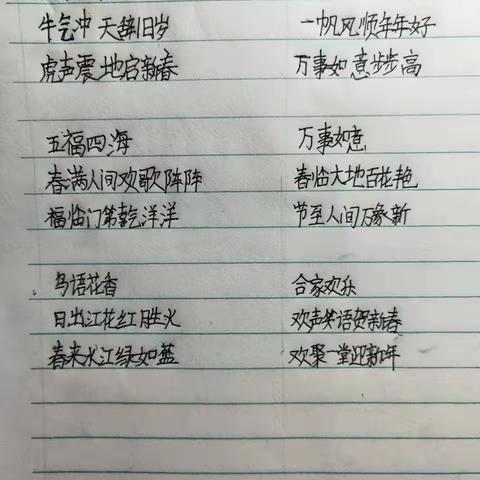 牛气冲天辞旧岁 一帆风顺年年好
虎声震地启新春 万事如意步步高
五福四海 万事如意
春满人间欢歌阵阵 春临大地百花艳
福临门第喜气洋洋 节至人间万象新
鸟语花香 合家欢乐
日出江花红胜火 欢声笑语贺新春
春来水江绿如蓝 欢聚一堂迎新年